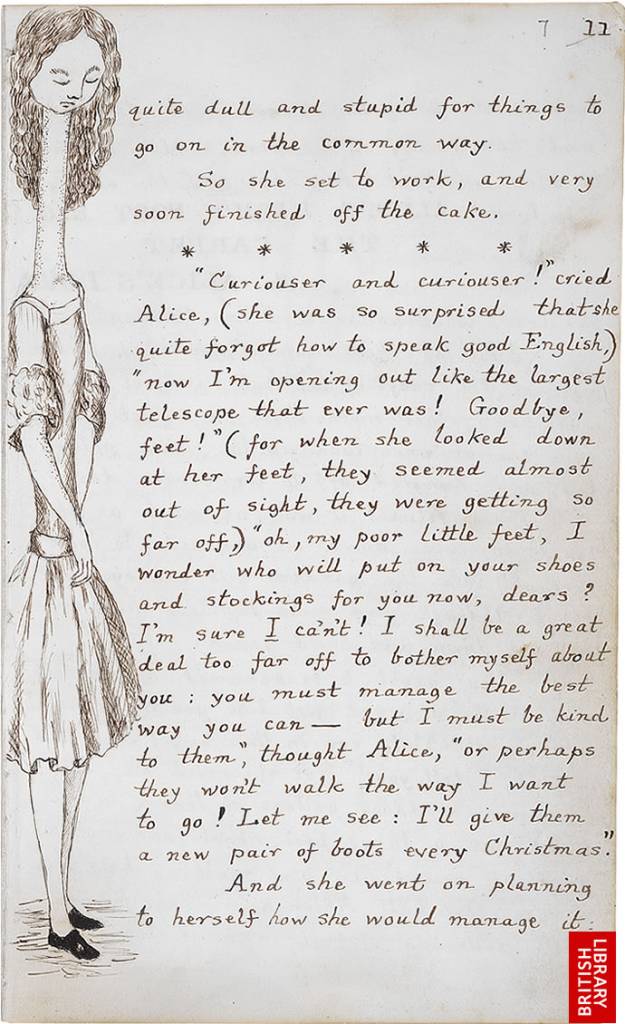 7 11
quite dull and stupid for things to
go on in the common way.
So she set to work, and very
soon finished off the cake.
* * * * *
"Curiouser and curiouser!" cried
Alice, (she was so surprised that she
quite forgot how to speak good English,)
"now I'm opening out like the largest
telescope that ever was! Goodbye,
feet!" (for when she looked down
at her feet, they seemed almost
out of sight, they were getting so
far off,) "oh, my poor little feet, I
wonder who will put on your shoes
and stockings for you now, dears?
I'm sure I ca'n't! I shall be a great
deal too far off to bother myself about
you: you must manage the best
way you can — but I must be kind
to them", thought Alice, "or perhaps
they won't walk the way I want
to go! Let me see: I'll give them
a new pair of boots every Christmas."
And she went on planning
to herself how she would manage it:
BRITISH
LIBRARY